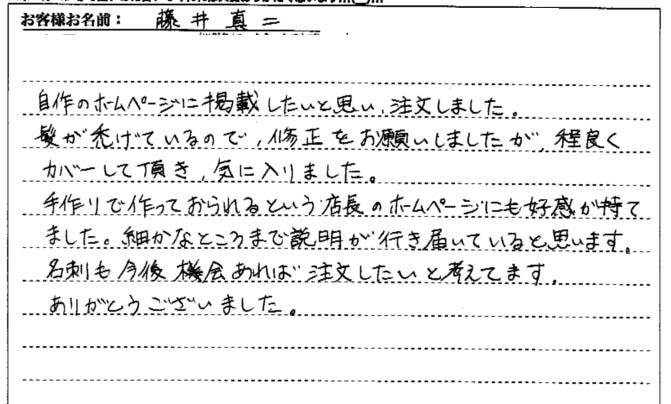 お客様お名前： 藤井真二
自作のホームページに掲載したいと思い、注文しました。
髪が禿げているので、修正をお願いしましたが、程良く
カバーして頂き、気に入りました。
手作りで作っておられるという店長のホームページにも好感が持て
ました。細かなところまで説明が行き届いていると思います。
名刺も今後機会あれば注文したいと考えてます。
ありがとうございました。